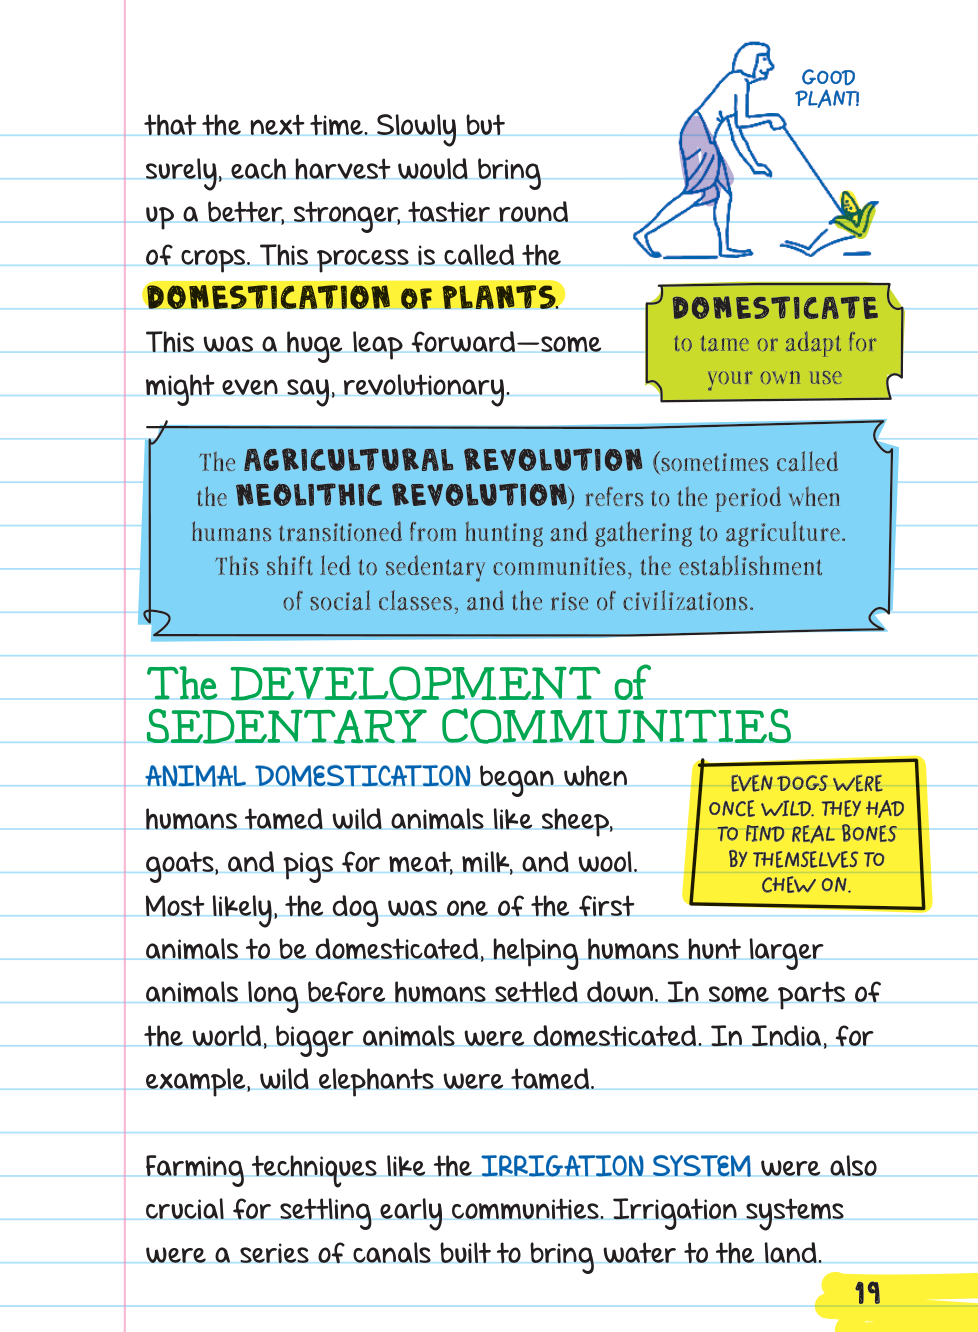 GOOD
PLANT!
that the next time. Slowly but
surely, each harvest would bring
up a better, stronger, tastier round
of crops. This process is called the
DOMESTICATION OF PLANTS.
This was a huge leap forward—some
might even say, revolutionary.
DOMESTICATE
to tame or adapt for
your own use
The AGRICULTURAL REVOLUTION (sometimes called
the NEOLITHIC REVOLUTION) refers to the period when
humans transitioned from hunting and gathering to agriculture.
This shift led to sedentary communities, the establishment
of social classes, and the rise of civilizations.
The DEVELOPMENT of
SEDENTARY COMMUNITIES
ANIMAL DOMESTICATION began when
humans tamed wild animals like sheep,
goats, and pigs for meat, milk, and wool.
Most likely, the dog was one of the first
animals to be domesticated, helping humans hunt larger
animals long before humans settled down. In some parts of
the world, bigger animals were domesticated. In India, for
example, wild elephants were tamed.
EVEN DOGS WERE
ONCE WILD. THEY HAD
TO FIND REAL BONES
BY THEMSELVES TO
CHEW ON.
Farming techniques like the IRRIGATION SYSTEM were also
crucial for settling early communities. Irrigation systems
were a series of canals built to bring water to the land.
19